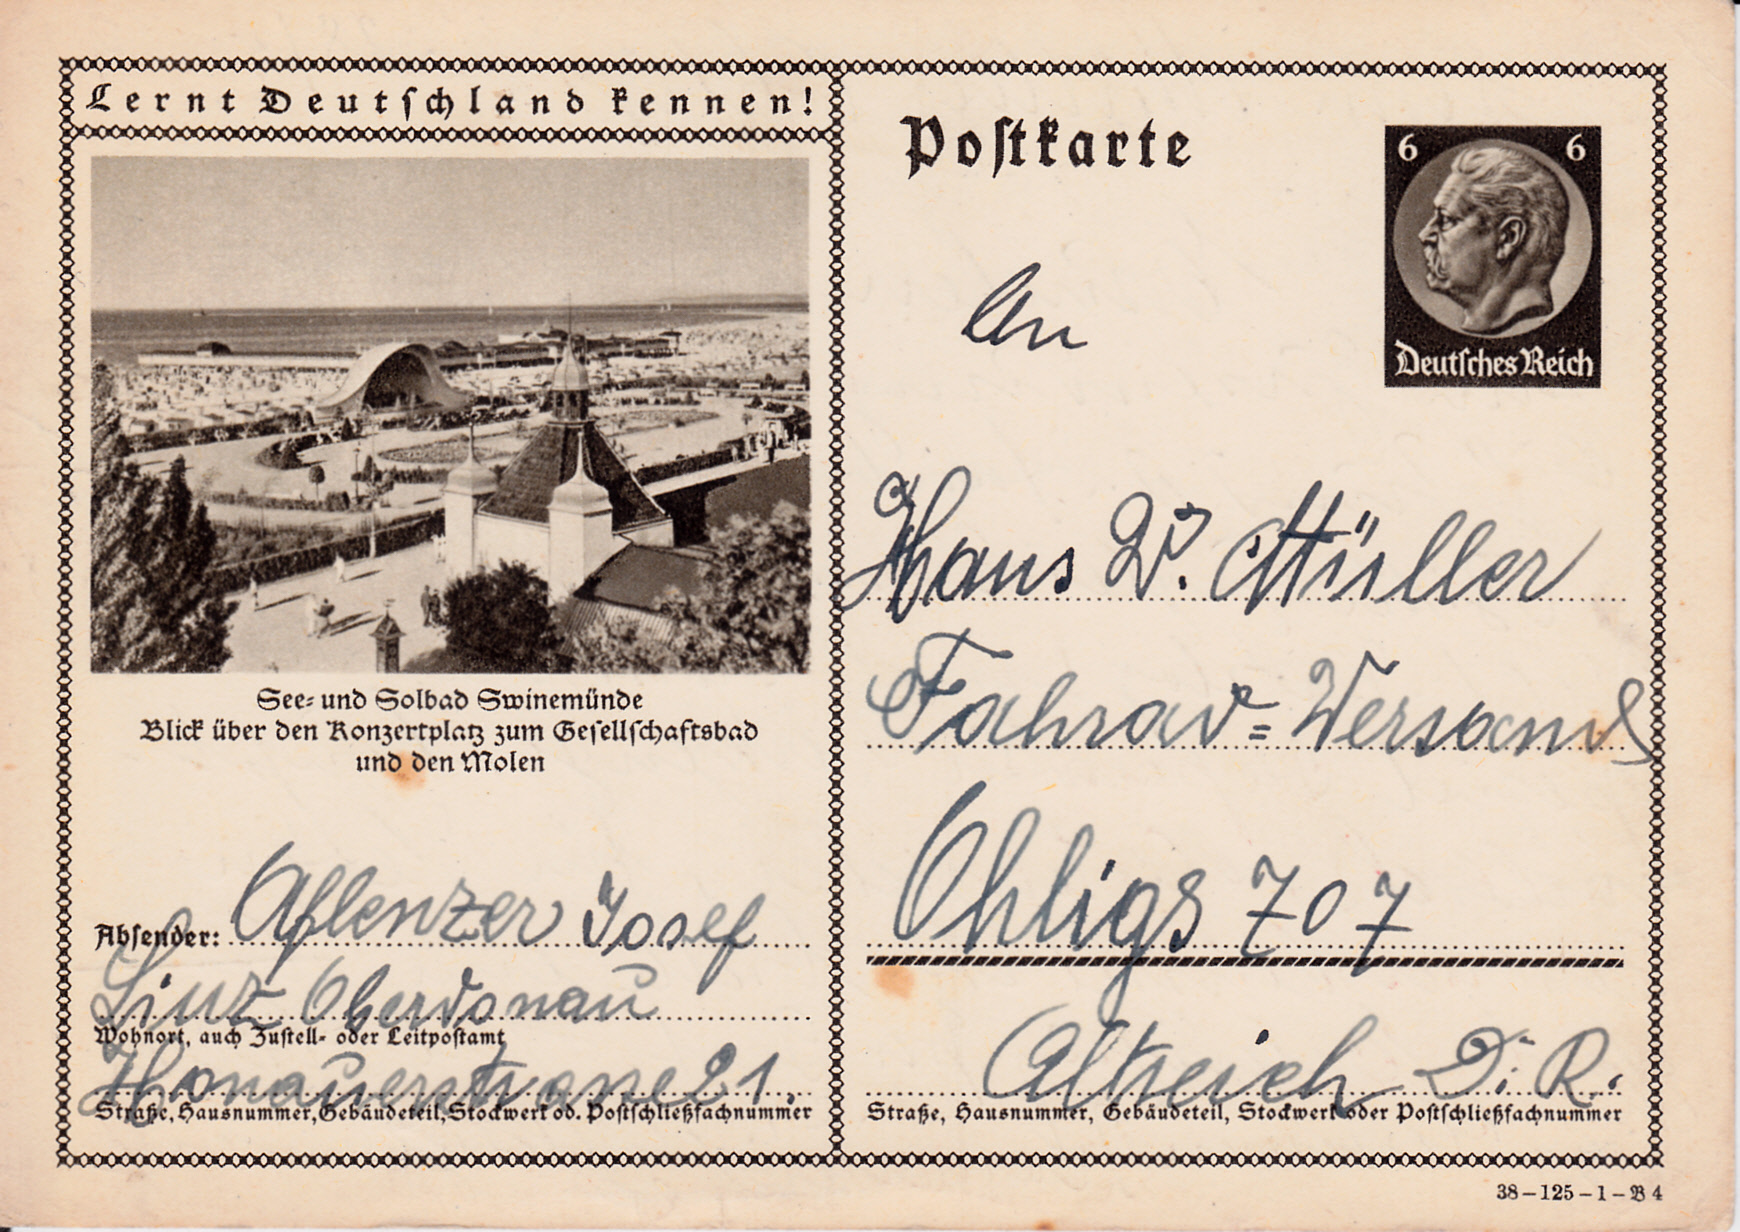 Lernt Deutschland kennen!
See- und Solbad Swinemünde
Blick über den Konzertplatz zum Gesellschaftsbad
und den Molen
Absender: Aflenzer Josef
Linz Oberdonau
Wohnort, auch Zustell- oder Leitpostamt
Honauerstrasse 21
Straße, Hausnummer, Gebäudeteil, Stockwerk od. Postschließfachnummer
Postkarte
6 6
Deutsches Reich
An
Hans W. Müller
Fahrad=Versand
Ohligs 707
Altreich D. R.
Straße, Hausnummer, Gebäudeteil, Stockwerk oder Postschließfachnummer
38-125-1-B4